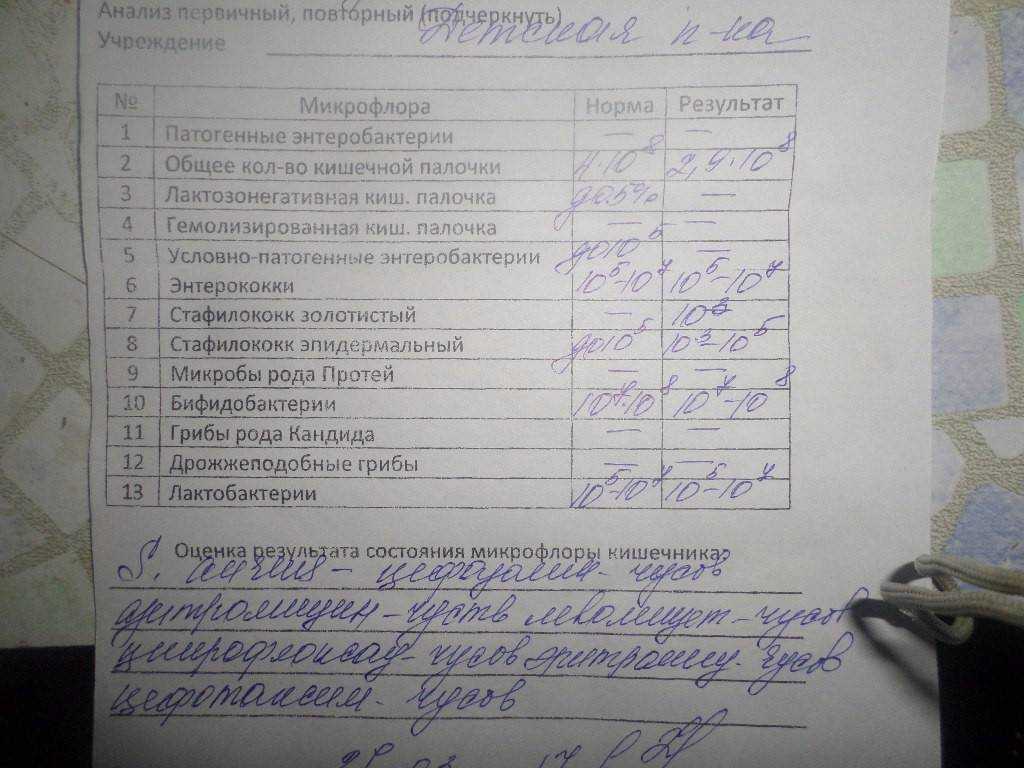 Анализ первичный, повторный (подчеркнуть)
Учреждение Детская п-ка
№ Микрофлора Норма Результат
1 Патогенные энтеробактерии — —
2 Общее кол-во кишечной палочки 4·10⁸ 2,9·10⁸
3 Лактозонегативная киш. палочка до 5% —
4 Гемолизированная киш. палочка — —
5 Условно-патогенные энтеробактерии до 10⁵ —
6 Энтерококки 10⁵-10⁷ 10⁵-10⁷
7 Стафилококк золотистый — 10³
8 Стафилококк эпидермальный до 10⁵ 10³-10⁵
9 Микробы рода Протей — —
10 Бифидобактерии 10⁷-10⁸ 10⁷-10⁸
11 Грибы рода Кандида — —
12 Дрожжеподобные грибы — —
13 Лактобактерии 10⁵-10⁷ 10⁵-10⁷
Оценка результата состояния микрофлоры кишечника:
S. - цефазолин - чусов
- чуств левомицет - чусов
- чусов эритромиц - чусов
цефотаксим - чусов